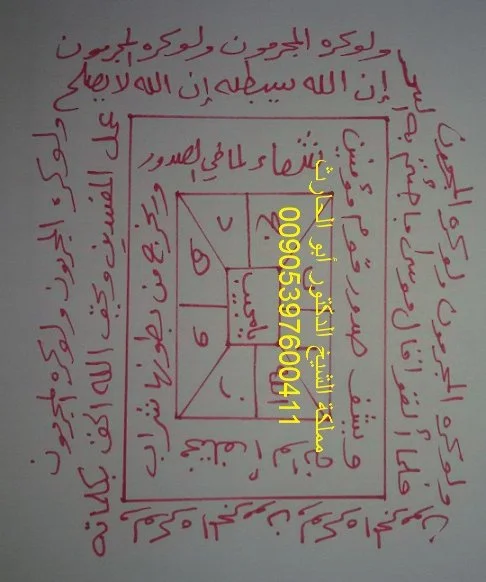 ولو كره المجرمون ولو كره المجرمون
فلما ألقوا قال موسى ما جئتم به السحر
إن الله سيبطله إن الله لا يصلح
عمل المفسدين ويحق الله الحق بكلماته
ولو كره المجرمون ولو كره المجرمون
ولو كره المجرمون ولو كره المجرمون
وشفاء لما في الصدور
ويشف صدور قوم مؤمنين
يخرج من بطونها شراب
مختلف
د
ج
ه
و
ز
مملكة الشيخ الدكتور أبو الحارث
00905397600411